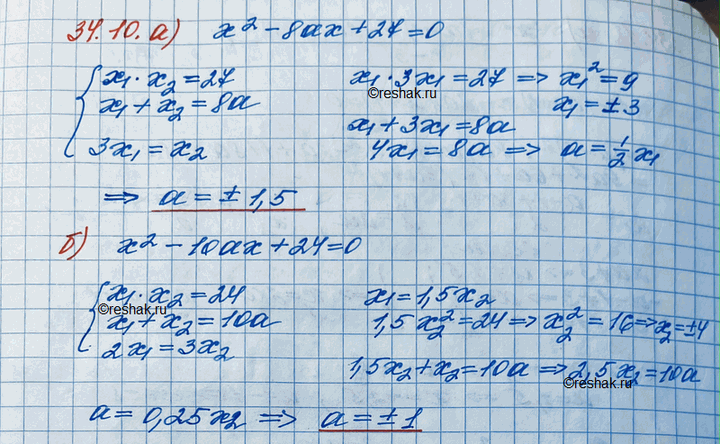 34.10. а) x² - 8ax + 27 = 0
x₁ · x₂ = 27
x₁ + x₂ = 8a
3x₁ = x₂
x₁ · 3x₁ = 27 => x₁² = 9
©reshak.ru
x₁ = ± 3
x₁ + 3x₁ = 8a
4x₁ = 8a => a = ½ x₁
=> a = ± 1,5
б) x² - 10ax + 24 = 0
x₁ · x₂ = 24
©reshak.ru
x₁ + x₂ = 10a
2x₁ = 3x₂
x₁ = 1,5x₂
1,5x₂² = 24 => x₂² = 16 => x₂ = ±4
1,5x₂ + x₂ = 10a => 2,5x₂ = 10a
©reshak.ru
a = 0,25x₂ => a = ± 1